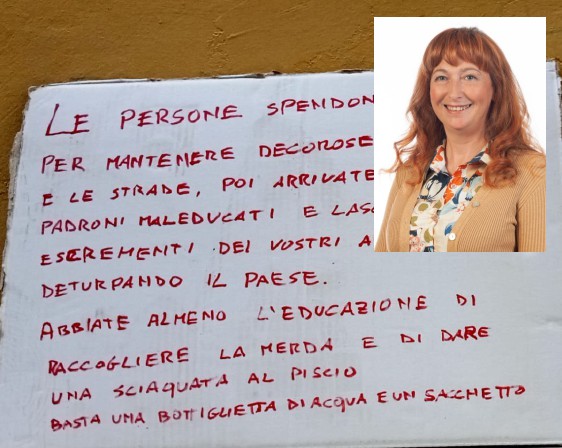 LE PERSONE SPENDON
PER MANTENERE DECOROSE
E LE STRADE, POI ARRIVATE
PADRONI MALEDUCATI E LASC
ESCREMENTI DEI VOSTRI A
DETURPANDO IL PAESE.
ABBIATE ALMENO L'EDUCAZIONE DI
RACCOGLIERE LA MERDA E DI DARE
UNA SCIAQUATA AL PISCIO
BASTA UNA BOTTIGLIETTA DI ACQUA E UN SACCHETTO